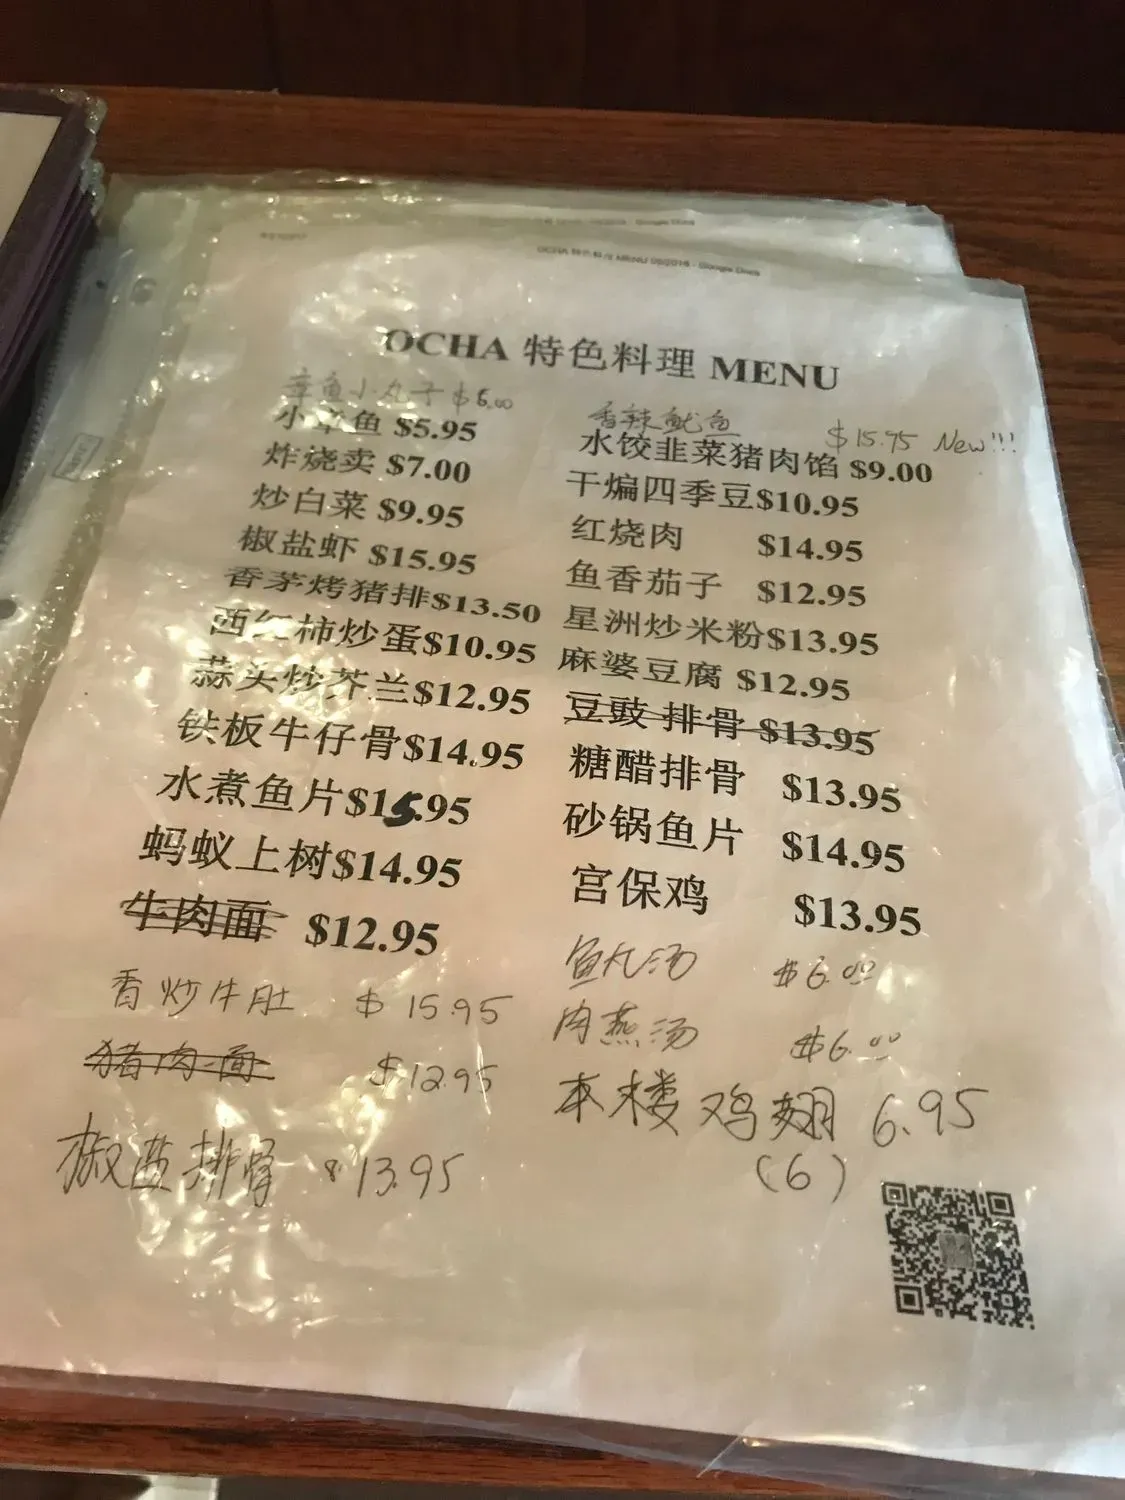 OCHA 特色料理 MENU 05/2016 - Google Docs
OCHA 特色料理 MENU
章鱼小丸子 $6.00
小章鱼 $5.95
炸烧卖 $7.00
炒白菜 $9.95
椒盐虾 $15.95
香茅烤猪排$13.50
西红柿炒蛋$10.95
蒜头炒芥兰$12.95
铁板牛仔骨$14.95
水煮鱼片$15.95
蚂蚁上树$14.95
牛肉面 $12.95
香炒牛肚 $15.95
猪肉面 $12.95
椒盐排骨 $13.95
香辣鱿鱼 $15.95 New!!!
水饺韭菜猪肉馅 $9.00
干煸四季豆$10.95
红烧肉 $14.95
鱼香茄子 $12.95
星洲炒米粉$13.95
麻婆豆腐 $12.95
豆豉 排骨 $13.95
糖醋排骨 $13.95
砂锅鱼片 $14.95
宫保鸡 $13.95
鱼丸汤 $6.00
肉燕汤 $6.00
本楼鸡翅 6.95
(6)